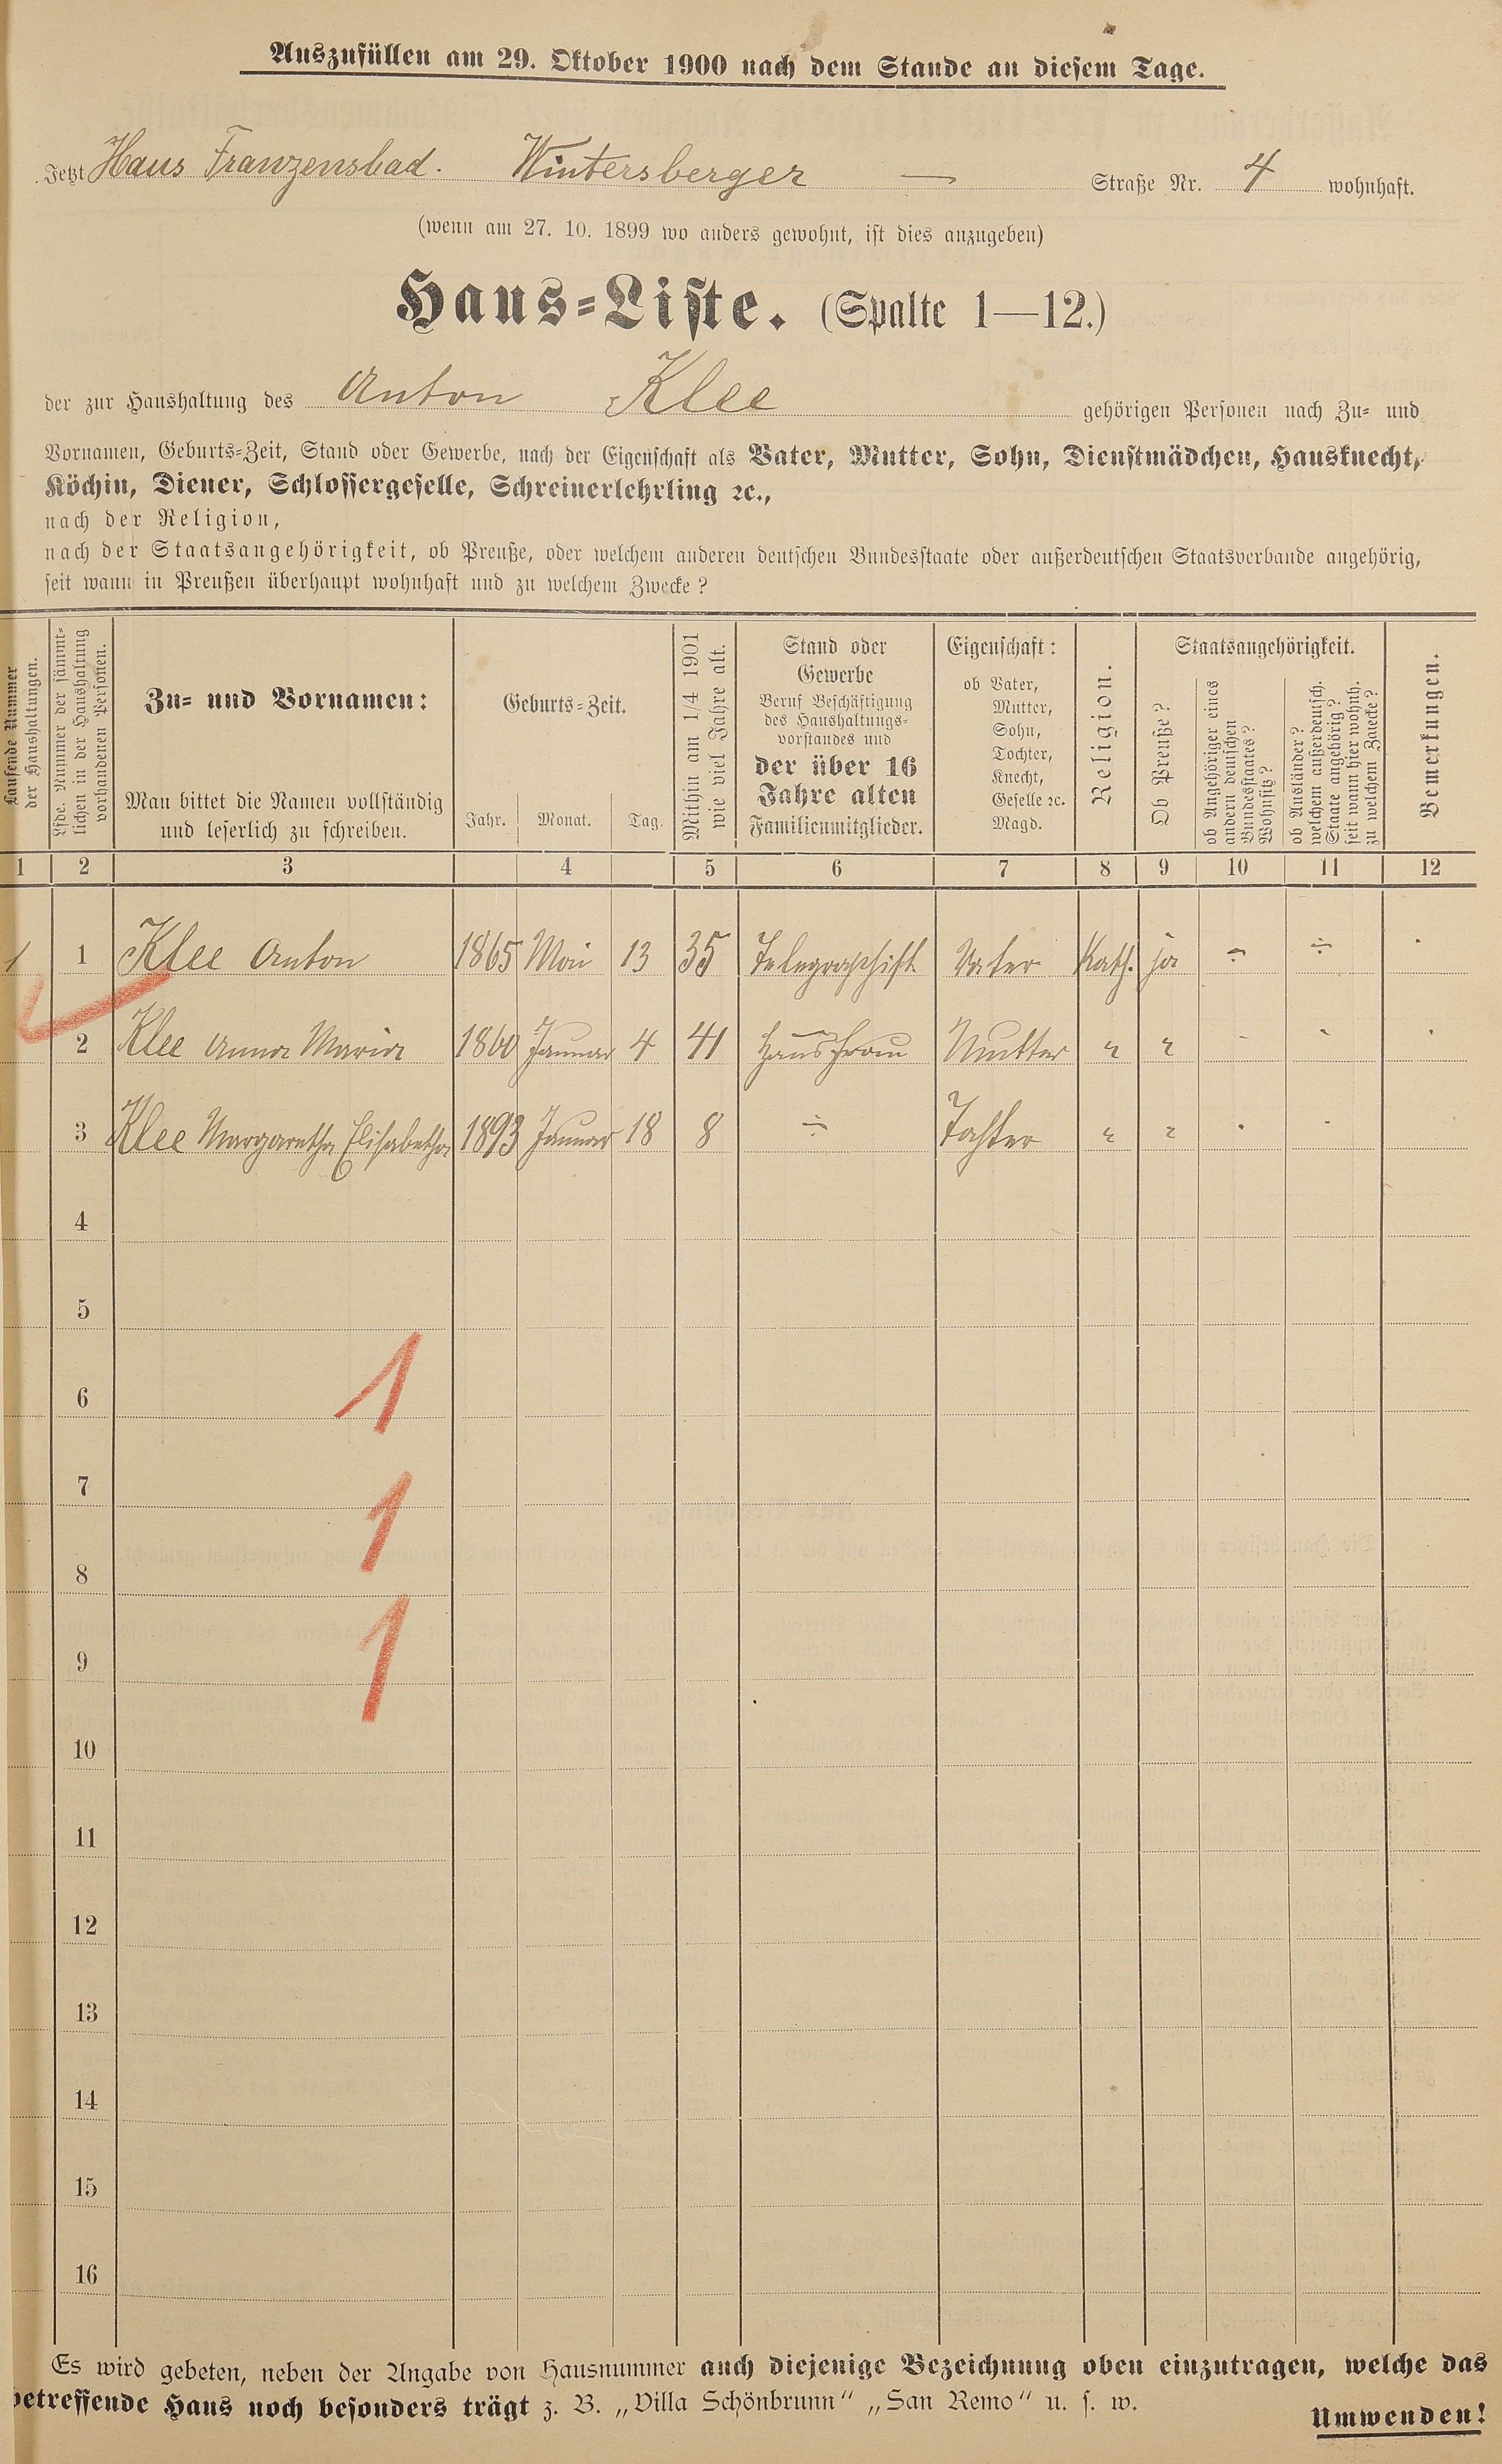 Auszufüllen am 29. Oktober 1900 nach dem Stande an diesem Tage.
Jetzt Haus Franzensbad. Wintersberger — Straße Nr. 4 wohnhaft.
(wenn am 27. 10. 1899 wo anders gewohnt, ist dies anzugeben)
Haus-Liste. (Spalte 1—12.)
der zur Haushaltung des Anton Klee gehörigen Personen nach Zu- und
Vornamen, Geburts-Zeit, Stand oder Gewerbe, nach der Eigenschaft als Vater, Mutter, Sohn, Dienstmädchen, Hausknecht,
Köchin, Diener, Schlossergeselle, Schreinerlehrling ꝛc.,
nach der Religion,
nach der Staatsangehörigkeit, ob Preuße, oder welchem anderen deutschen Bundesstaate oder außerdeutschen Staatsverbande angehörig,
seit wann in Preußen überhaupt wohnhaft und zu welchem Zwecke?
Laufende Nummer
der Haushaltungen.
Lfde. Nummer der sämmt-
lichen in der Haushaltung
vorhandenen Personen.
Zu- und Vornamen:
Man bittet die Namen vollständig
und leserlich zu schreiben.
Geburts-Zeit.
Jahr. Monat. Tag.
Mithin am 1/4 1901
wie viel Jahre alt.
Stand oder
Gewerbe
Beruf Beschäftigung
des Haushaltungs-
vorstandes und
der über 16
Jahre alten
Familienmitglieder.
Eigenschaft:
ob Vater,
Mutter,
Sohn,
Tochter,
Knecht,
Geselle ꝛc.
Magd.
Religion.
Staatsangehörigkeit.
Ob Preuße?
ob Angehöriger eines
andern deutschen
Bundesstaates?
Wohnsitz?
ob Ausländer?
welchem außerdeutsch.
Staate angehörig?
seit wann hier wohnh.
zu welchem Zwecke?
Bemerkungen.
1 2 3 4 5 6 7 8 9 10 11 12
1 1 Klee Anton 1865 Mai 13 35 Telegraphist Vater Kath. ja ÷ ÷
2 Klee Anna Maria 1860 Januar 4 41 Hausfrau Mutter " "
3 Klee Margaretha Elisabetha 1893 Januar 18 8 ÷ Tochter " "
4
5
6
1
7
1
8
9
1
10
11
12
13
14
15
16
Es wird gebeten, neben der Angabe von Hausnummer auch diejenige Bezeichnung oben einzutragen, welche das
betreffende Haus noch besonders trägt z. B. „Villa Schönbrunn“ „San Remo“ u. s. w.
Umwenden!